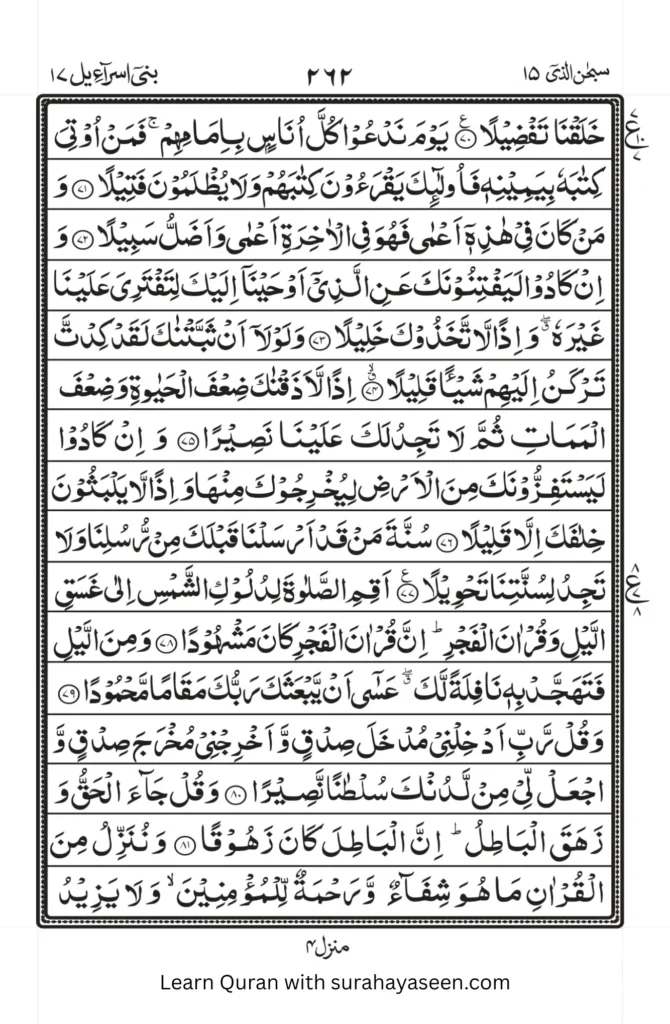 سبحٰن الذیٓ ۱۵
۲۶۲
بنیٓ اسرآءیل ۱۷
خَلَقۡنَا تَفۡضِيۡلًا ﴿۷۰﴾ يَوۡمَ نَدۡعُوۡا كُلَّ اُنَاسٍۭ بِاِمَامِهِمۡ‌ۚ فَمَنۡ اُوۡتِىَ
كِتٰبَهٗ بِيَمِيۡنِهٖ فَاُولٰۤٮِٕكَ يَقۡرَءُوۡنَ كِتٰبَهُمۡ وَلَا يُظۡلَمُوۡنَ فَتِيۡلًا ﴿۷۱﴾ وَ
مَنۡ كَانَ فِىۡ هٰذِهٖۤ اَعۡمٰى فَهُوَ فِى الۡاٰخِرَةِ اَعۡمٰى وَاَضَلُّ سَبِيۡلًا ﴿۷۲﴾ وَ
اِنۡ كَادُوۡا لَيَفۡتِنُوۡنَكَ عَنِ الَّذِىۡۤ اَوۡحَيۡنَاۤ اِلَيۡكَ لِتَفۡتَرِىَ عَلَيۡنَا
غَيۡرَهٗ‌ ۖ وَاِذًا لَّاتَّخَذُوۡكَ خَلِيۡلًا ﴿۷۳﴾ وَلَوۡلَاۤ اَنۡ ثَبَّتۡنٰكَ لَقَدۡ كِدۡتَّ
تَرۡكَنُ اِلَيۡهِمۡ شَيۡـًٔـا قَلِيۡلًا ۙ ﴿۷۴﴾ اِذًا لَّاَذَقۡنٰكَ ضِعۡفَ الۡحَيٰوةِ وَضِعۡفَ
الۡمَمَاتِ ثُمَّ لَا تَجِدُ لَـكَ عَلَيۡنَا نَصِيۡرًا ﴿۷۵﴾ وَاِنۡ كَادُوۡا
لَيَسۡتَفِزُّوۡنَكَ مِنَ الۡاَرۡضِ لِيُخۡرِجُوۡكَ مِنۡهَا‌ وَاِذًا لَّا يَلۡبَـثُوۡنَ
خِلٰفَكَ اِلَّا قَلِيۡلًا ﴿۷۶﴾ سُنَّةَ مَنۡ قَدۡ اَرۡسَلۡنَا قَبۡلَكَ مِنۡ رُّسُلِنَا‌ وَلَا
تَجِدُ لِسُنَّتِنَا تَحۡوِيۡلًا ﴿۷۷﴾ اَقِمِ الصَّلٰوةَ لِدُلُوۡكِ الشَّمۡسِ اِلٰى غَسَقِ
الَّيۡلِ وَقُرۡاٰنَ الۡـفَجۡرِ‌ؕ اِنَّ قُرۡاٰنَ الۡـفَجۡرِ كَانَ مَشۡهُوۡدًا ﴿۷۸﴾ وَمِنَ الَّيۡلِ
فَتَهَجَّدۡ بِهٖ نَافِلَةً لَّكَ ۖ عَسٰۤى اَنۡ يَّبۡعَثَكَ رَبُّكَ مَقَامًا مَّحۡمُوۡدًا ﴿۷۹﴾
وَقُلۡ رَّبِّ اَدۡخِلۡنِىۡ مُدۡخَلَ صِدۡقٍ وَّاَخۡرِجۡنِىۡ مُخۡرَجَ صِدۡقٍ وَّ
اجۡعَلۡ لِّىۡ مِنۡ لَّدُنۡكَ سُلۡطٰنًا نَّصِيۡرًا ﴿۸۰﴾ وَقُلۡ جَآءَ الۡحَـقُّ وَ
زَهَقَ الۡبَاطِلُ‌ؕ اِنَّ الۡبَاطِلَ كَانَ زَهُوۡقًا ﴿۸۱﴾ وَنُنَزِّلُ مِنَ
الۡـقُرۡاٰنِ مَا هُوَ شِفَآءٌ وَّرَحۡمَةٌ لِّـلۡمُؤۡمِنِيۡنَۙ وَلَا يَزِيۡدُ
ع ۷ ۱۰ ۷
ع ۸ ۷ ۸
منزل ۴
Learn Quran with surahayaseen.com